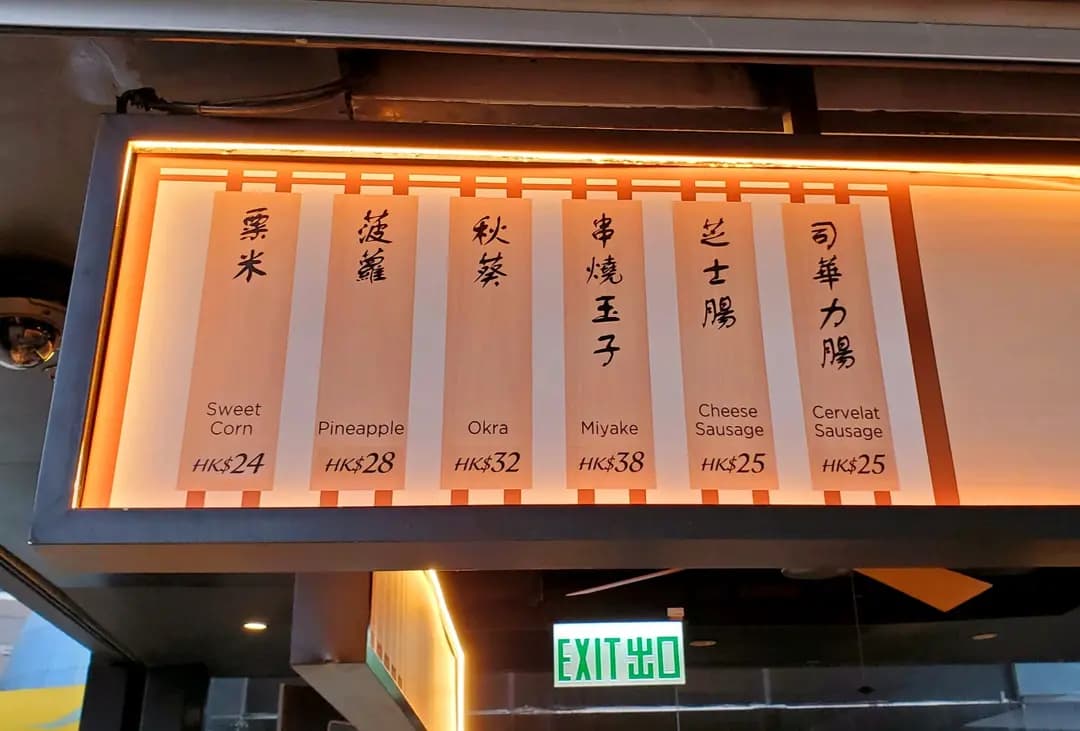 粟米
Sweet
Corn
HK$24
菠蘿
Pineapple
HK$28
秋葵
Okra
HK$32
串燒玉子
Miyake
HK$38
芝士腸
Cheese
Sausage
HK$25
司華力腸
Cervelat
Sausage
HK$25
EXIT 出口